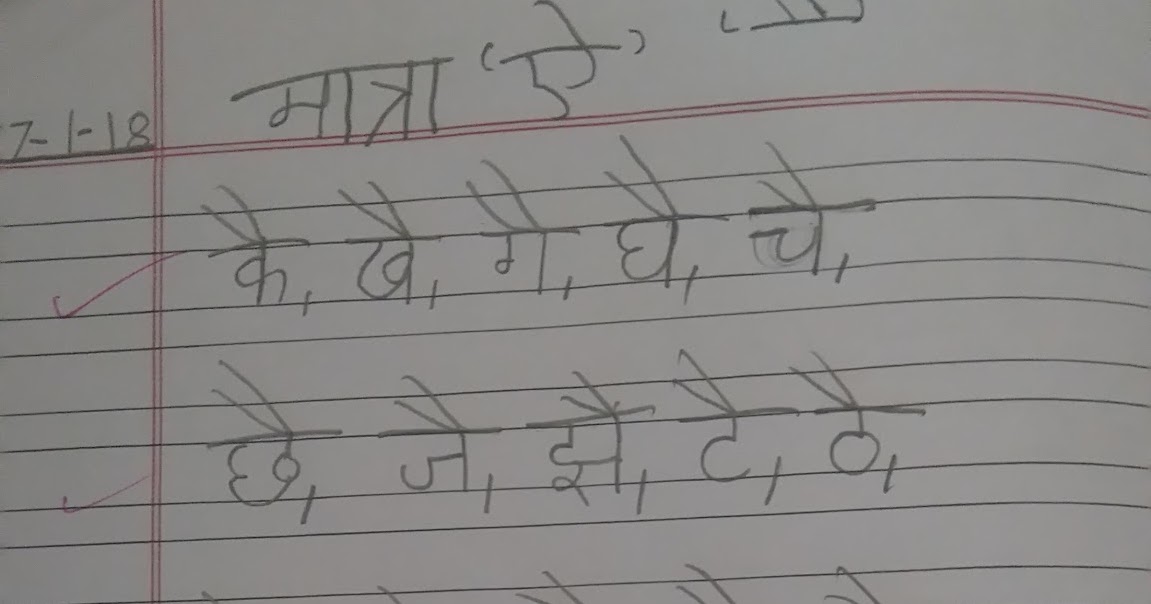 मात्रा (ऐ)
7-1-18
कै, खै, गै, घै, चै,
छै, जै, झै, टै, ठै,